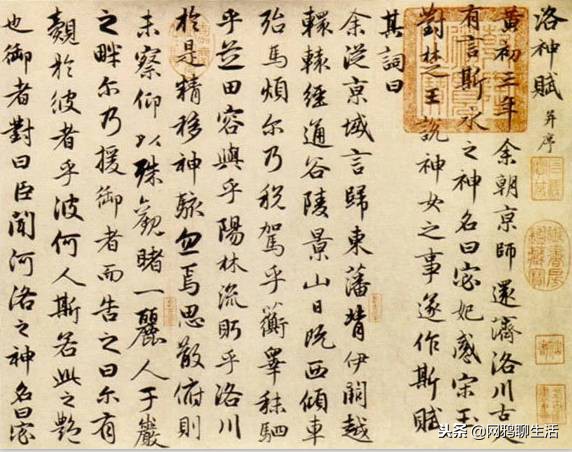 洛神賦 并序
黃初三年余朝京師還濟洛川古人
有言斯水之神名曰宓妃感宋玉
對楚王說神女之事遂作斯賦
其詞曰
余從京城言歸東藩背伊闕越
轘轅經通谷陵景山日既西傾車
殆馬煩尔乃稅駕乎蘅皋秣駟
乎芝田容與乎陽林流眄乎洛川
於是精移神駭忽焉思散俯則
未察仰以殊觀睹一麗人于巖
之畔尔乃援御者而告之曰尔有
覿於彼者乎彼何人斯若此之艷
也御者對曰臣聞河洛之神名曰宓
头条 @网鸦聊生活